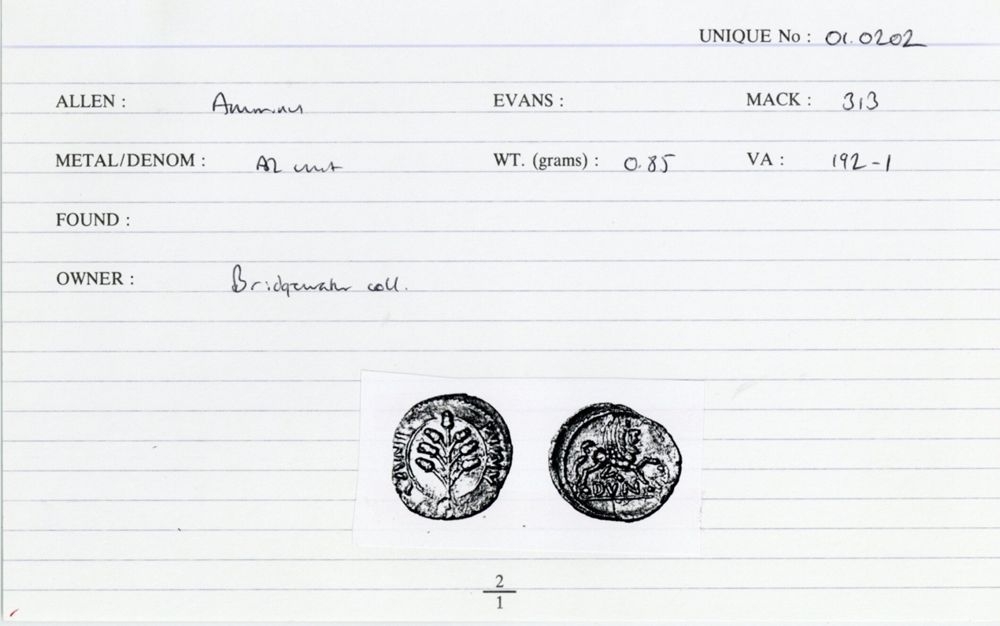 UNIQUE No : 01.0202
ALLEN : Amminus EVANS : MACK : 313
METAL/DENOM : AR unit WT. (grams) : 0.85 VA : 192-1
FOUND :
OWNER : Bridgewater coll.
DVN
2
1